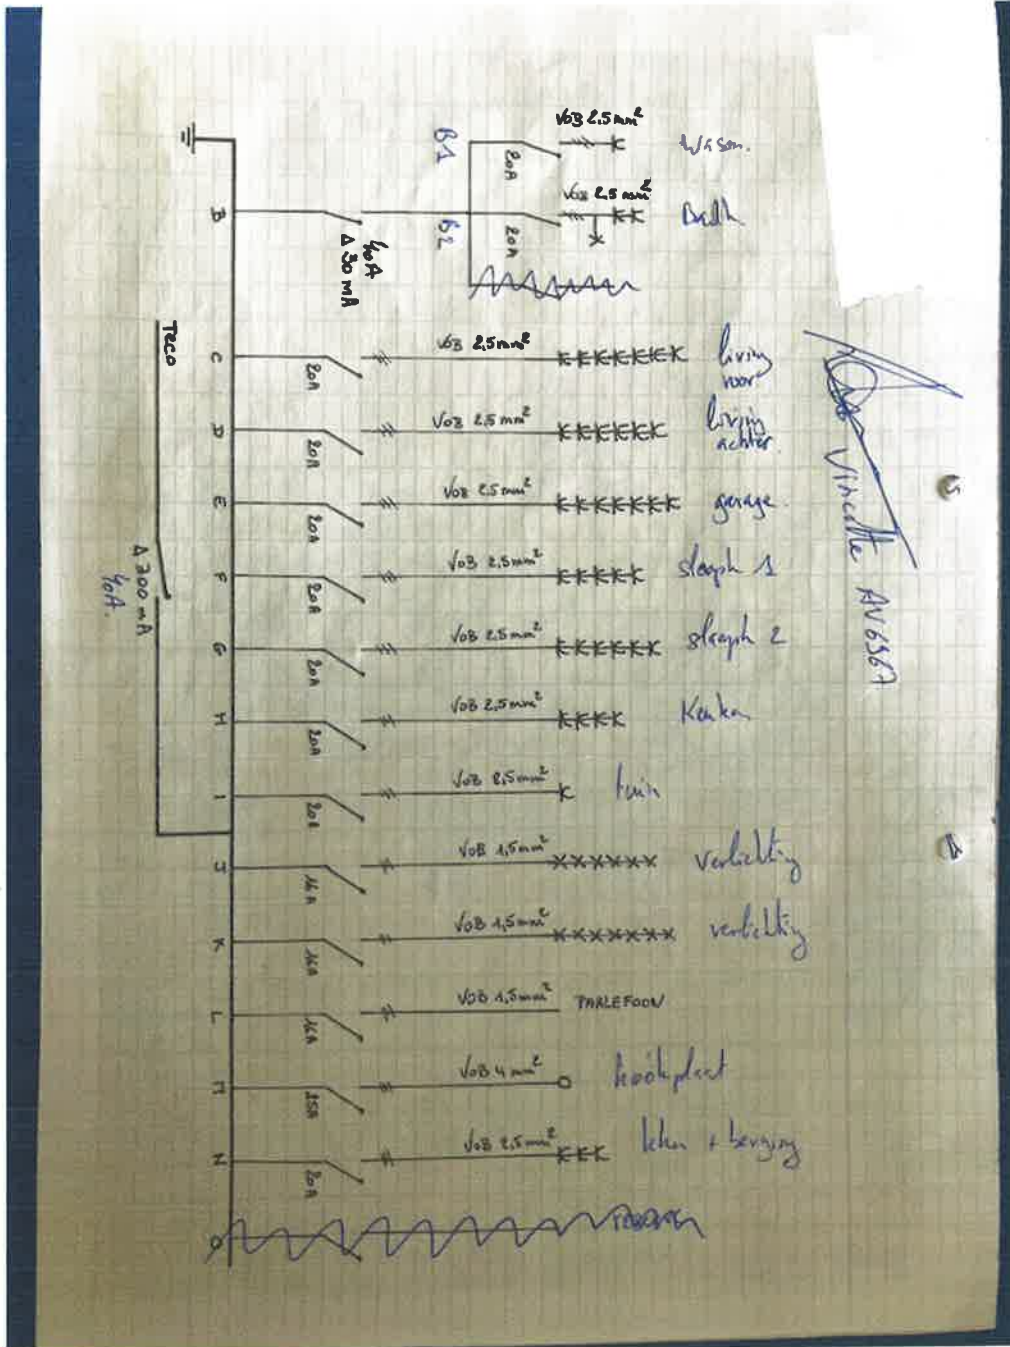 B1
20A
VOB 2,5mm²
Wasm.
B
40A
Δ 30 mA
B2
20A
VOB 2,5 mm²
Badk
Vincotte AV6967
TECO
Δ 300 mA
40A.
C
20A
VOB 2,5mm²
living
voor
D
20A
VOB 2,5 mm²
living
achter
E
20A
VOB 2,5mm²
garage
F
20A
VOB 2,5mm²
slaapk 1
G
20A
VOB 2,5mm²
slaapk 2
H
20A
VOB 2,5mm²
Keuken
I
20A
VOB 2,5mm²
tuin
J
16A
VOB 1,5mm²
verlichting
K
16A
VOB 1,5mm²
verlichting
L
16A
VOB 1,5mm²
PARLEFOON
M
25A
VOB 4 mm²
kookplaat
N
20A
VOB 2,5mm²
keken + berging
O